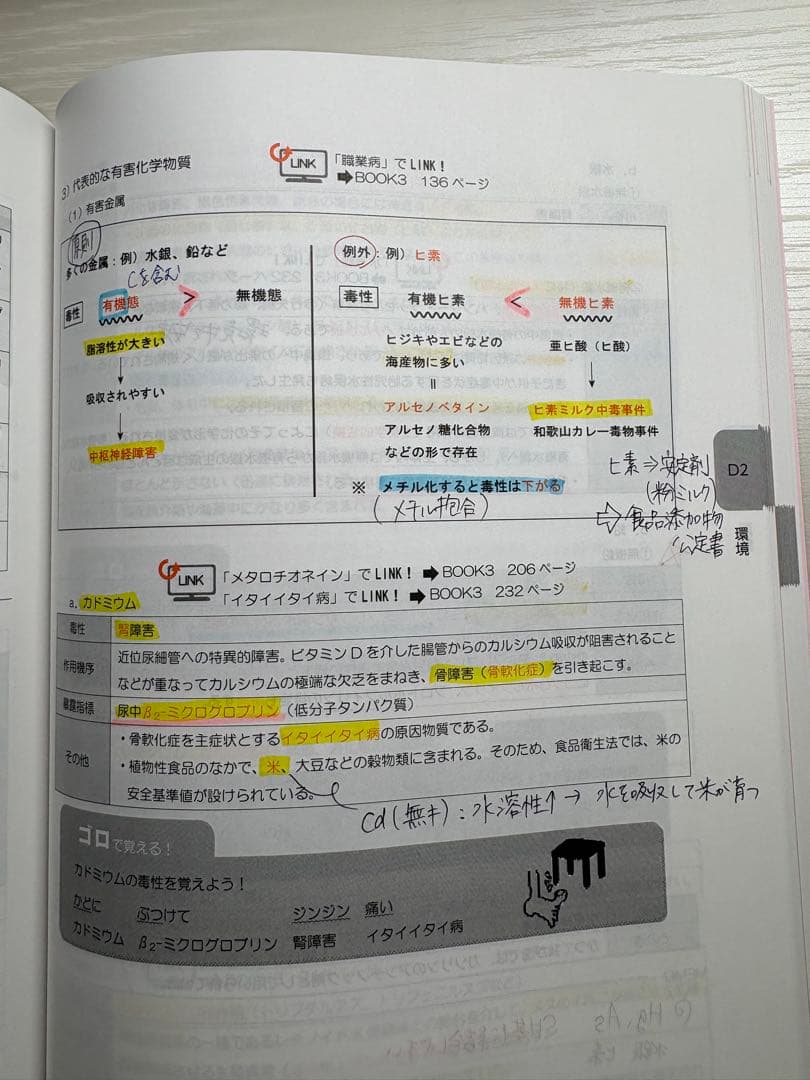 3) 代表的な有害化学物質
LINK
「職業病」でLINK!
➡BOOK3 136ページ
(1) 有害金属
原則
多くの金属：例）水銀、鉛など
Cを含む
毒性
有機態
>
無機態
脂溶性が大きい
↓
吸収されやすい
↓
中枢神経障害
例外：例）ヒ素
毒性
有機ヒ素
<
無機ヒ素
ヒジキやエビなどの
海産物に多い
=
アルセノベタイン
アルセノ糖化合物
などの形で存在
亜ヒ酸（ヒ酸）
↓
ヒ素ミルク中毒事件
和歌山カレー毒物事件
※ メチル化すると毒性は下がる
(メチル抱合)
ヒ素⇒安定剤
(粉ミルク)
⇨食品添加物
公定書
D2
環境
LINK
「メタロチオネイン」でLINK! ➡BOOK3 206ページ
「イタイイタイ病」でLINK! ➡BOOK3 232ページ
a. カドミウム
毒性 腎障害
作用機序 近位尿細管への特異的障害。ビタミンDを介した腸管からのカルシウム吸収が阻害されること
などが重なってカルシウムの極端な欠乏をまねき、骨障害（骨軟化症）を引き起こす。
暴露指標 尿中β2-ミクログロブリン（低分子タンパク質）
その他 ・骨軟化症を主症状とするイタイイタイ病の原因物質である。
・植物性食品のなかで、米、大豆などの穀物類に含まれる。そのため、食品衛生法では、米の
安全基準値が設けられている。
Cd(無キ)：水溶性↑→ 水を吸収して米が育つ
ゴロで覚える！
カドミウムの毒性を覚えよう！
かどに ぶつけて ジンジン 痛い
カドミウム β2-ミクログロブリン 腎障害 イタイイタイ病